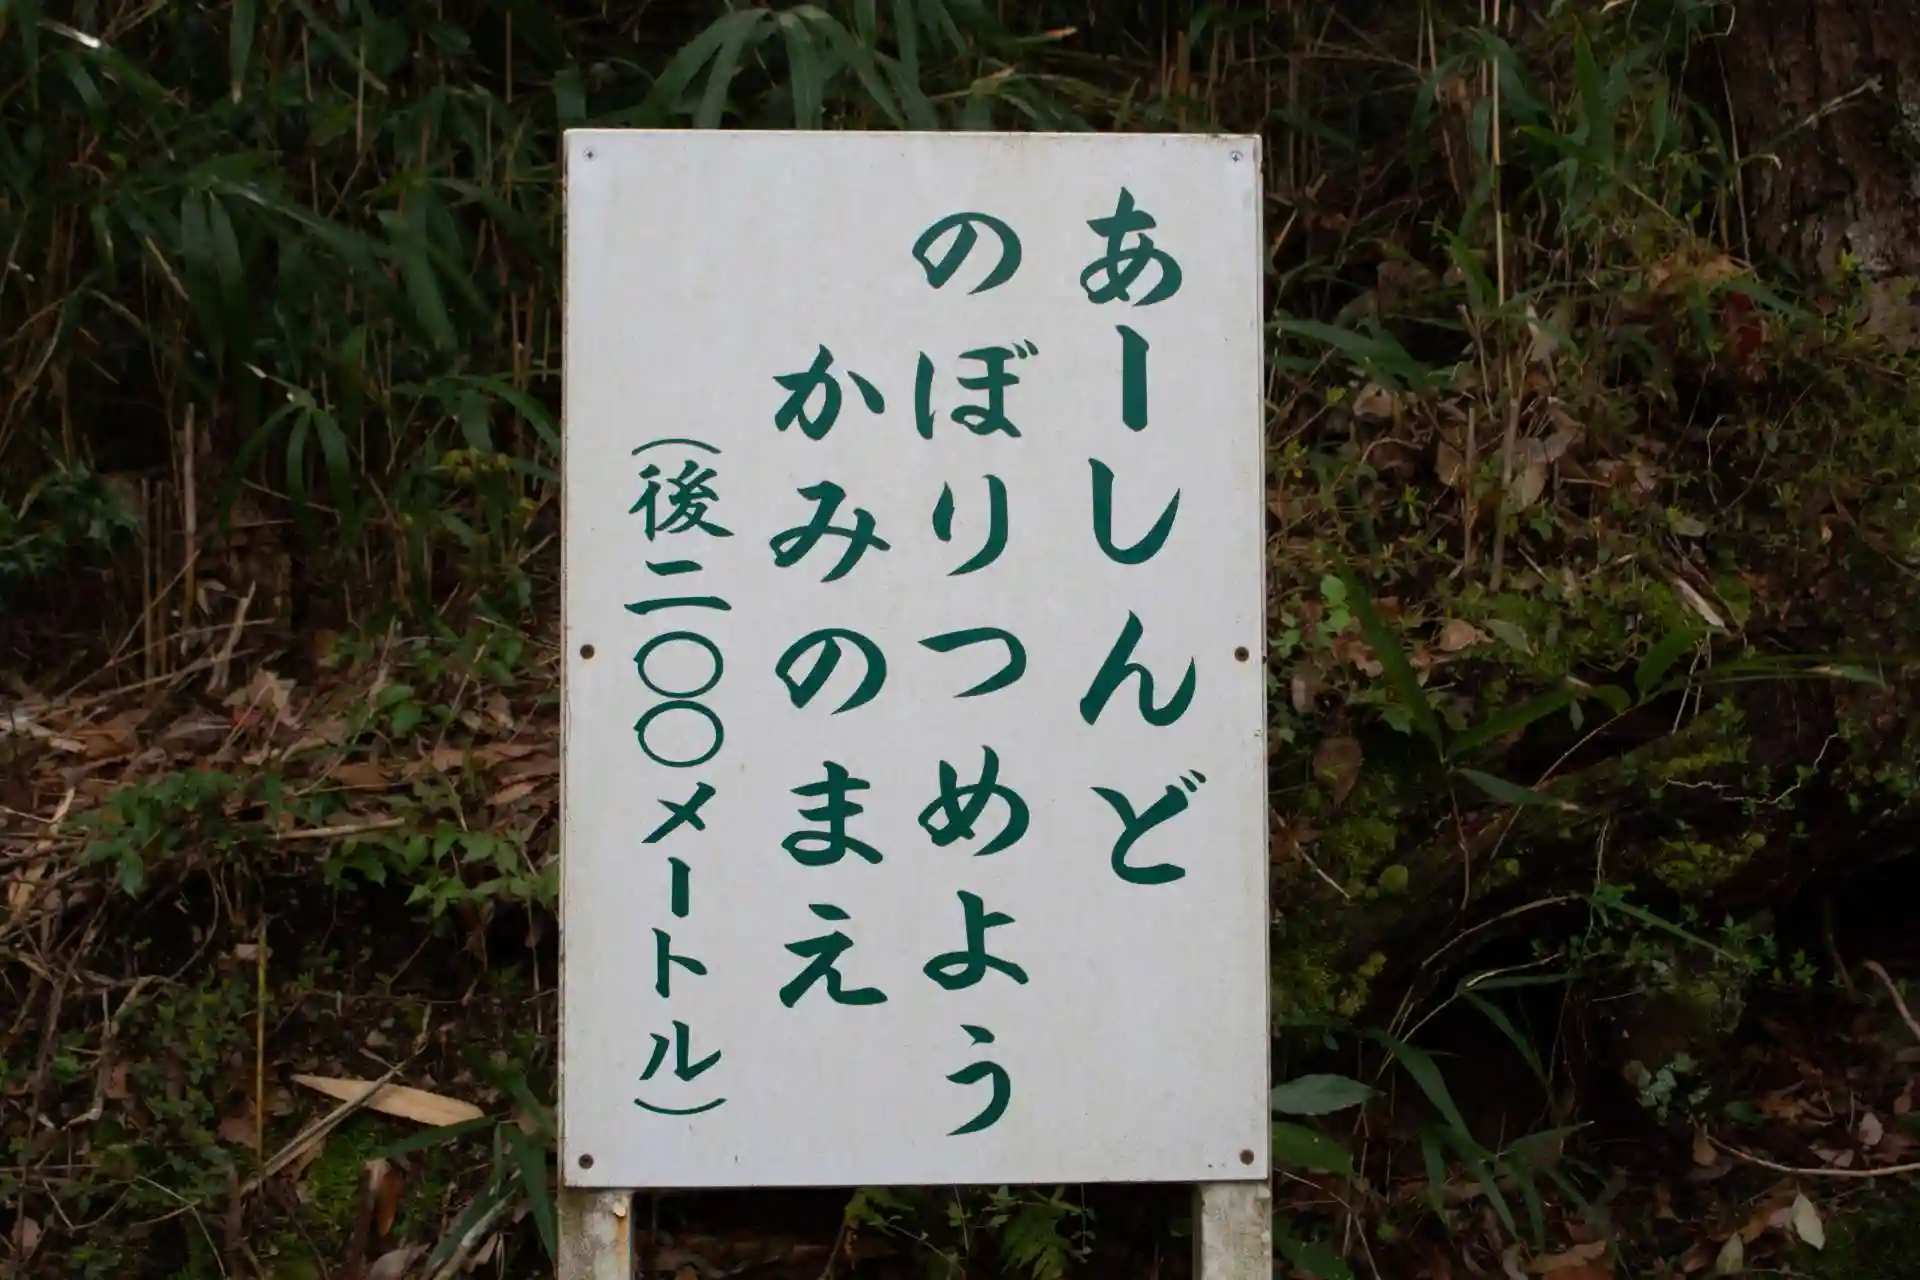 あーしんど
のぼりつめよう
かみのまえ
（後二〇〇メートル）